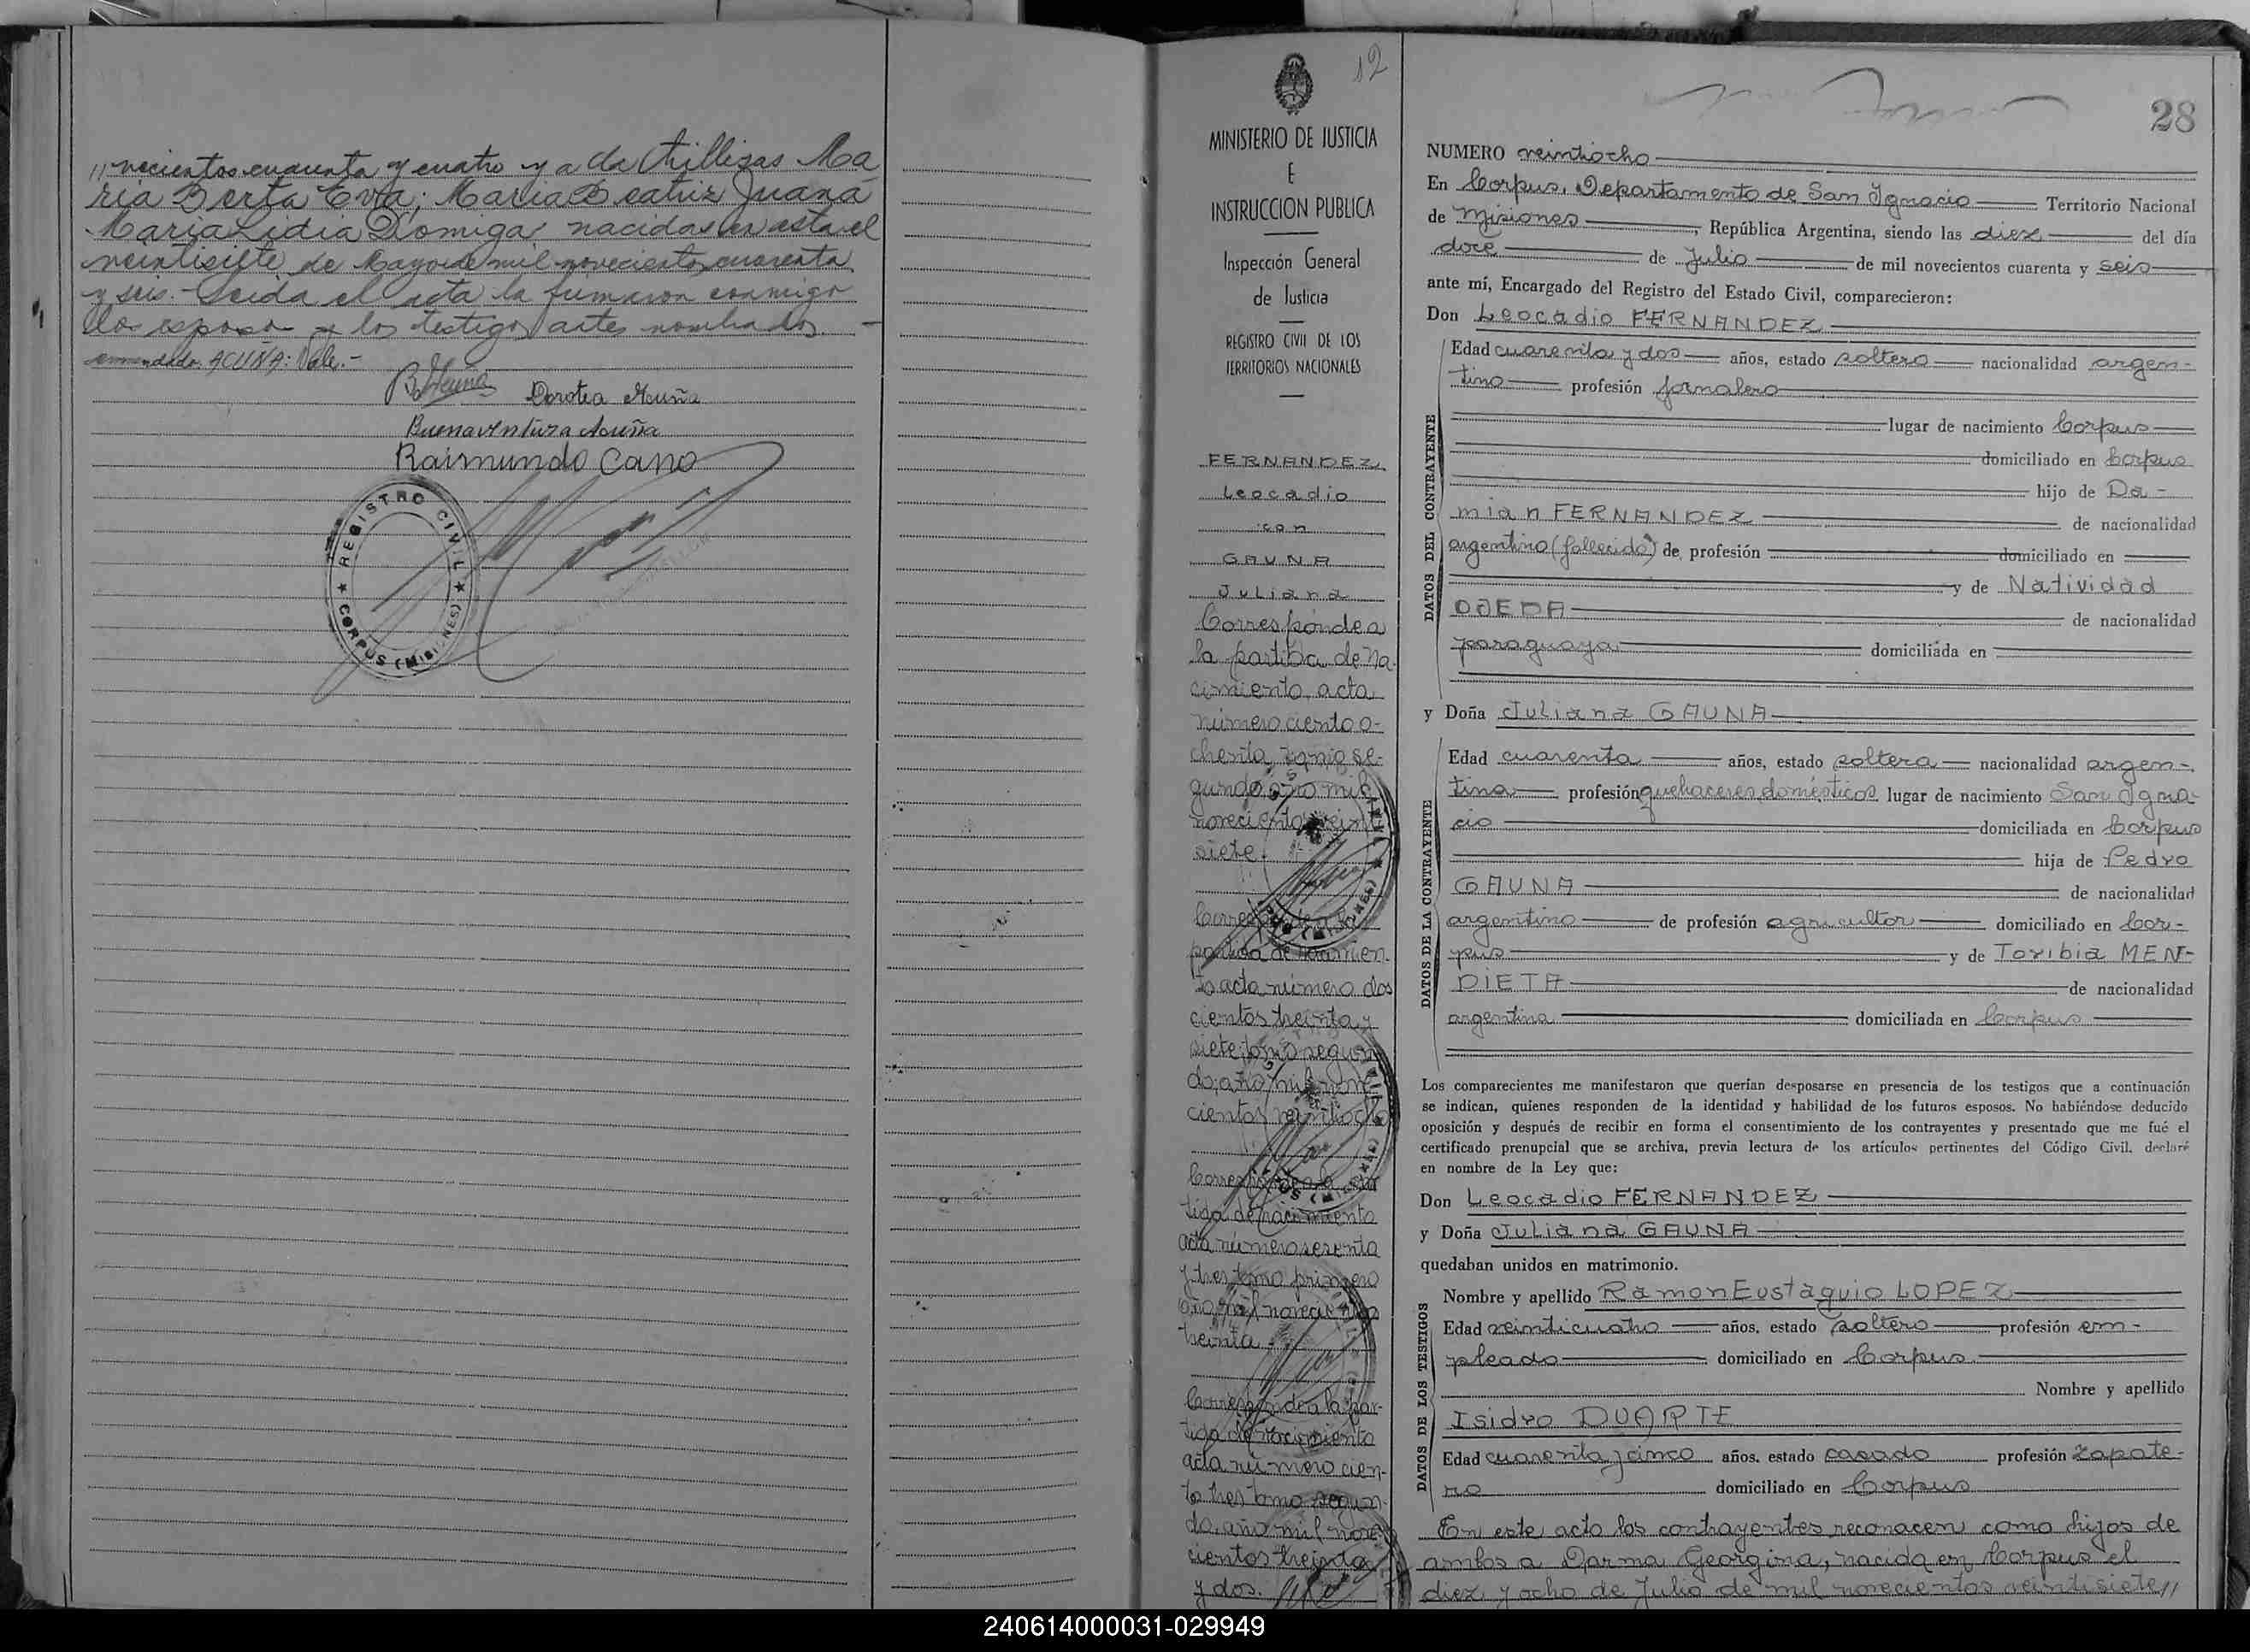 // vecientos cuarenta y cuatro y a da trillizas Ma
ria Berta Eva; Maria Beatriz Juana
Maria Lidia Dominga nacidas en esta el
veintisiete de Mayo de mil novecientos cuarenta
y seis.- Leida el acta la firmaron conmigo
los esposos y los testigos antes nombrados -
enmendado ACUÑA: Vale.-
B. Acuña Dorotea Acuña
Buenaventura Acuña
Raimundo Cano
REGISTRO CIVIL
CORPUS (MISIONES)
12
MINISTERIO DE JUSTICIA
E
INSTRUCCION PUBLICA
Inspección General
de Justicia
REGISTRO CIVIL DE LOS
TERRITORIOS NACIONALES
FERNANDEZ
Leocadio
con
GAUNA
Juliana
Corresponde a
la partida de Na-
cimiento, acta
número ciento o-
chenta, tomo se-
gundo, año mil
novecientos veinti
siete.
Corresponde a la
partida de nacimien-
to acta número dos
cientos treinta y
siete, tomo segun
do, año mil nove
cientos veintiocho
Corresponde a la par
tida de nacimiento
acta número sesenta
y tres tomo primero
año mil novecientos
treinta.
Corresponde a la par-
tida de nacimiento
acta número cien-
to tres tomo segun-
do, año mil nove
cientos treinta
y dos.
28
NUMERO veintiocho
En Corpus, Departamento de San Ignacio Territorio Nacional
de Misiones, República Argentina, siendo las diez del día
doce de Julio de mil novecientos cuarenta y seis
ante mí, Encargado del Registro del Estado Civil, comparecieron:
Don Leocadio FERNANDEZ
DATOS DEL CONTRAYENTE
Edad cuarenta y dos años, estado soltero nacionalidad argen-
tino profesión jornalero
lugar de nacimiento Corpus
domiciliado en Corpus
hijo de Da-
mian FERNANDEZ de nacionalidad
argentino (fallecido) de profesión domiciliado en
y de Natividad
OJEDA de nacionalidad
paraguaya domiciliada en
y Doña Juliana GAUNA
DATOS DE LA CONTRAYENTE
Edad cuarenta años, estado soltera nacionalidad argen-
tina profesión quehaceres domésticos lugar de nacimiento San Igna-
cio domiciliada en Corpus
hija de Pedro
GAUNA de nacionalidad
argentino de profesión agricultor domiciliado en Cor-
pus y de Toribia MEN-
DIETA de nacionalidad
argentina domiciliada en Corpus
Los comparecientes me manifestaron que querían desposarse en presencia de los testigos que a continuación
se indican, quienes responden de la identidad y habilidad de los futuros esposos. No habiéndose deducido
oposición y después de recibir en forma el consentimiento de los contrayentes y presentado que me fué el
certificado prenupcial que se archiva, previa lectura de los artículos pertinentes del Código Civil, declaré
en nombre de la Ley que:
Don Leocadio FERNANDEZ
y Doña Juliana GAUNA
quedaban unidos en matrimonio.
DATOS DE LOS TESTIGOS
Nombre y apellido Ramon Eustaquio LOPEZ
Edad veinticuatro años, estado soltero profesión em-
pleado domiciliado en Corpus
Nombre y apellido
Isidro DUARTE
Edad cuarenta y cinco años, estado casado profesión zapate-
ro domiciliado en Corpus
En este acto los contrayentes reconocen como hijos de
ambos a Darma Georgina, nacida en Corpus el
diez y ocho de Julio de mil novecientos veintisiete//
240614000031-029949